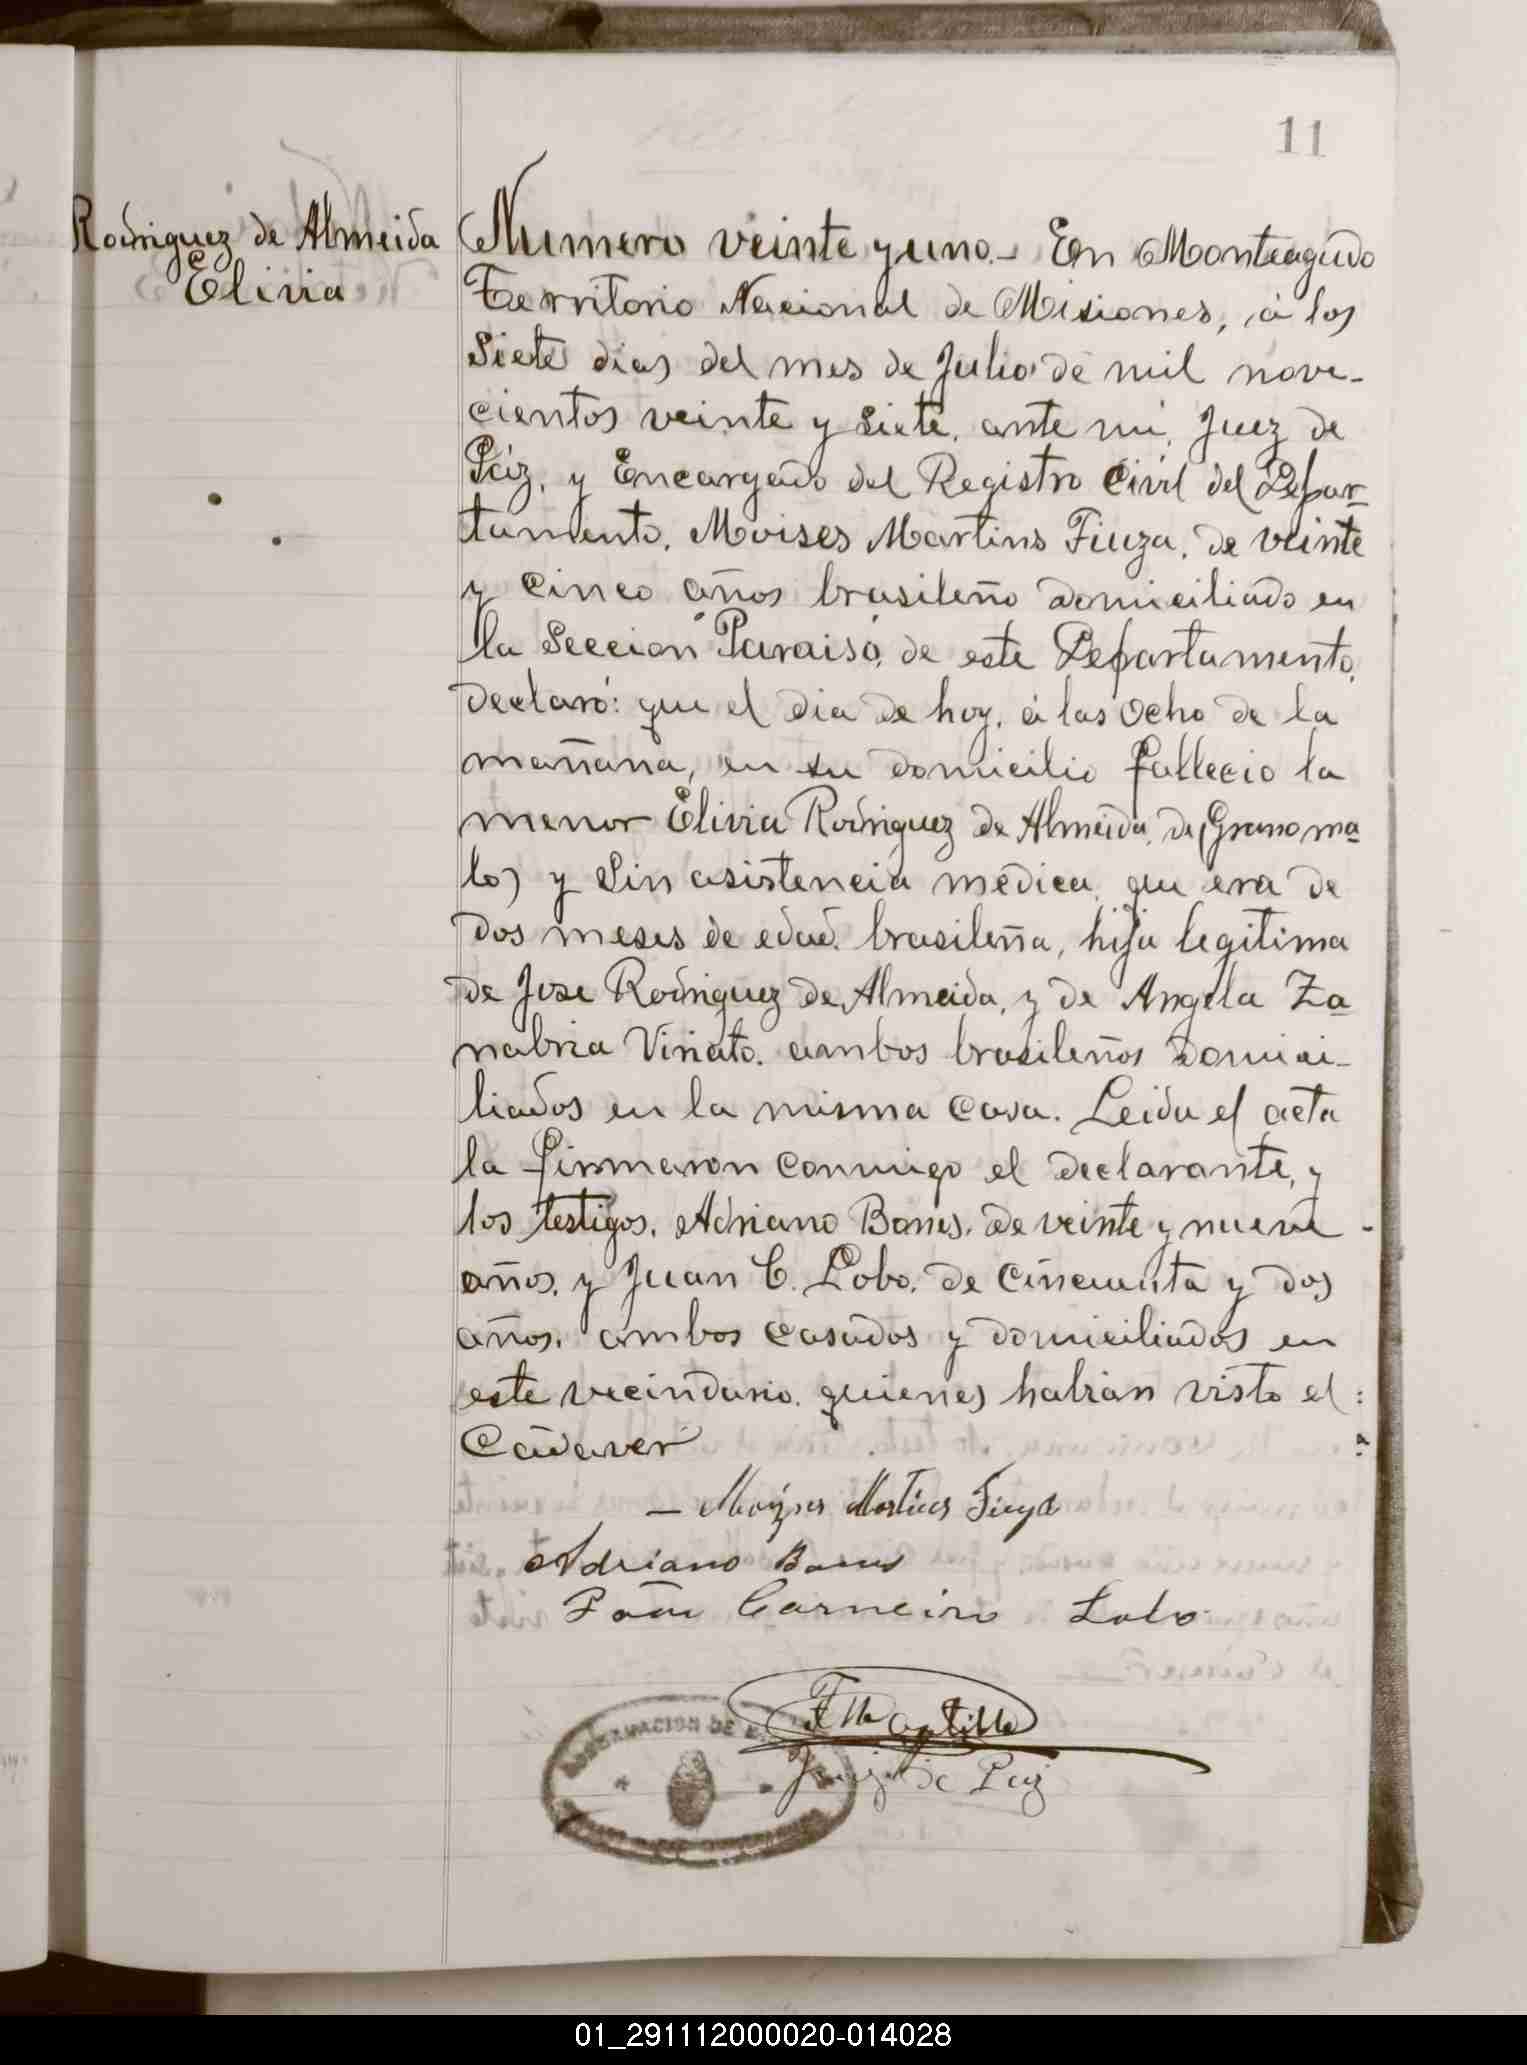 11
Rodriguez de Almeida
Elivia
Numero veinte y uno.- En Monteagudo
Territorio Nacional de Misiones, á los
siete dias del mes de Julio de mil nove-
cientos veinte y siete, ante mi, Juez de
Páz, y Encargado del Registro Civil del Depar-
tamento, Moises Martins Fiuza, de veinte
y cinco años brasileño domiciliado en
la Seccion Paraiso, de este Departamento,
declaró: que el dia de hoy, á las ocho de la
mañana, en su domicilio fallecio la
menor Elivia Rodriguez de Almeida, de (Grano ma-
lo) y sin asistencia medica, que era de
dos meses de edad, brasileña, hija legitima
de Jose Rodriguez de Almeida, y de Angela Za-
nabria Viriato, ambos brasileños domici-
liados en la misma casa. Leida el acta
la firmaron conmigo el declarante, y
los testigos, Adriano Bones, de veinte y nueve
años, y Juan C. Lobo, de cincuenta y dos
años, ambos casados y domiciliados en
este vecindario, quienes habian visto el
Cadaver
- Moyses Martins Fiuza
Adriano Bones
João Carneiro Lobo
Juez de Paz
GOBERNACION DE
01_291112000020-014028